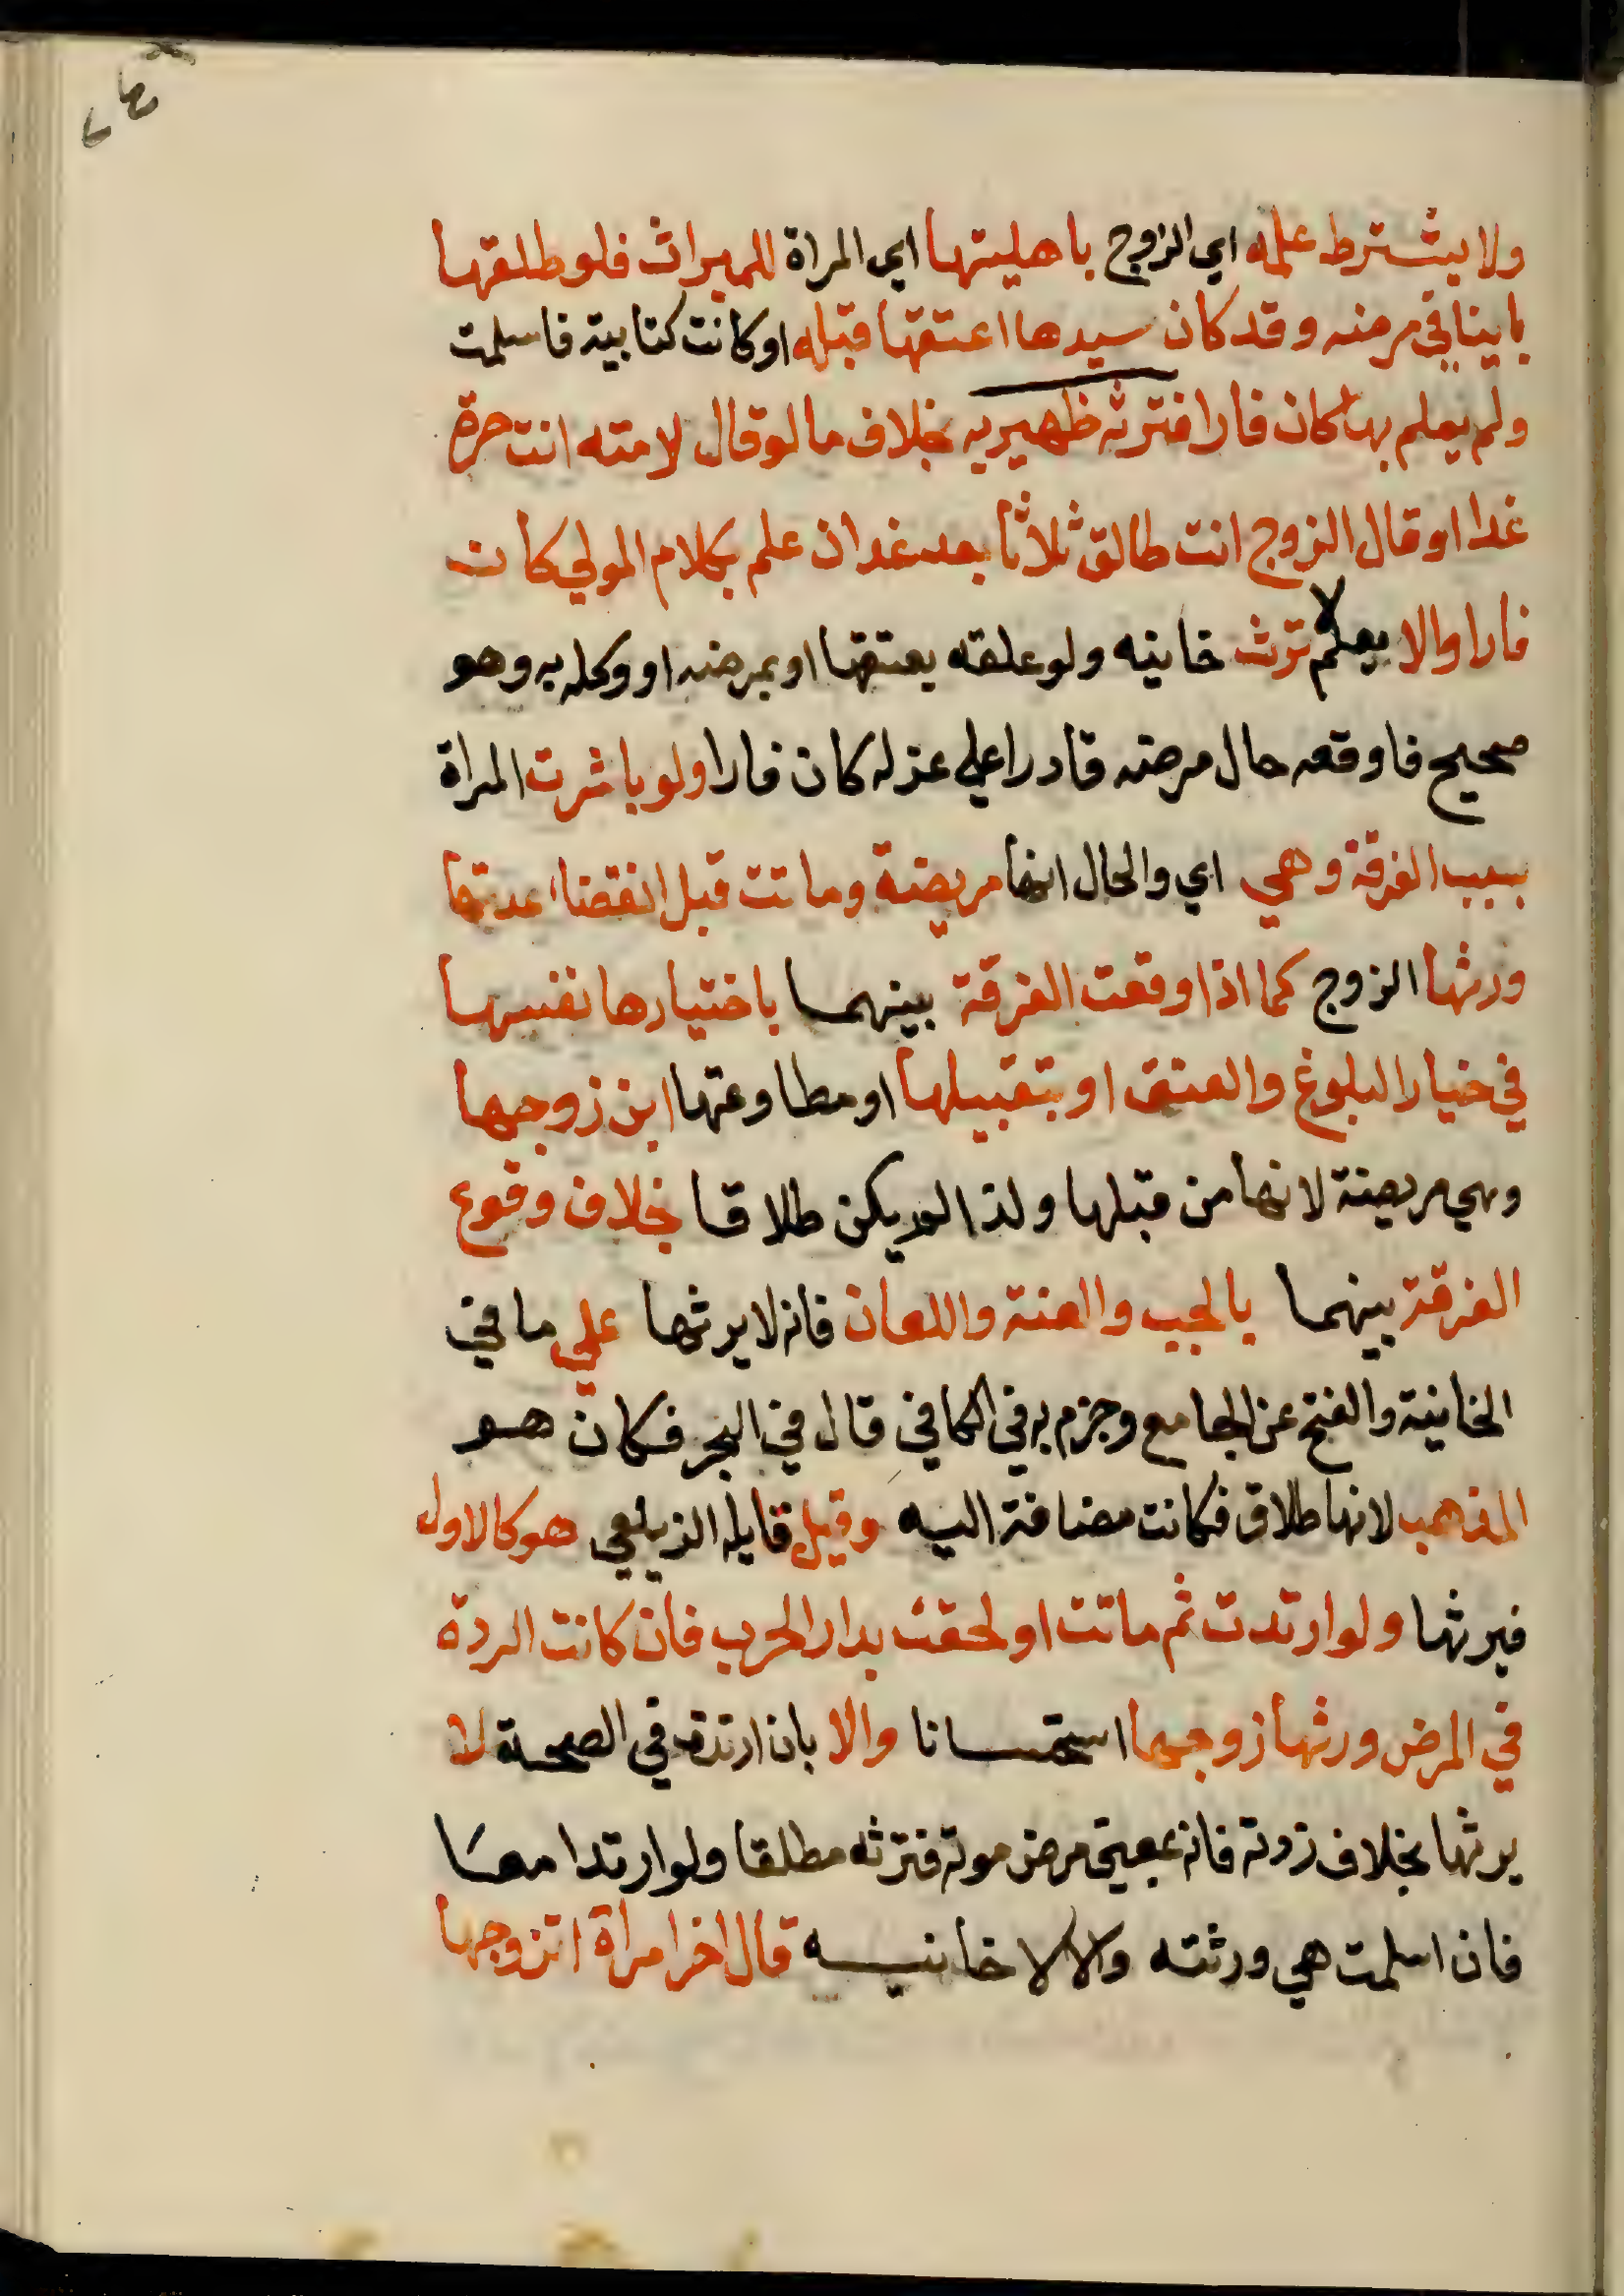 ولا يشترط علمه اي الزوج باهليتها اي المراة للميراث فلو طلقها
باينا في مرضه وقد كان سيدها اعتقها قبله او كانت كتابية فاسلمت
ولم يعلم بها كان فارا فترثه ظهيريه بخلاف ما لو قال لامته انت حرة
غدا او قال الزوج انت طالق ثلاثا بعد غد ان علم بكلام المولي كان
فارا والا يعلم لا ترث خانيه ولو علقه بعتقها او بمرضه او وكله به وهو
صحيح فاوقعه حال مرضه قادرا علي عزله كان فارا ولو باشرت المراة
بسبب الفرقة وهي اي والحال انها مريضة وماتت قبل انقضا عدتها
ورثها الزوج كما اذا وقعت الفرقة بينهما باختيارها نفسها
في خيار البلوغ والعتق او بتقبيلها او مطاوعتها ابن زوجها
وهي مريضة لانها من قبلها ولذا لم يكن طلاقا بخلاف وقوع
الفرقة بينهما بالجب والعنة واللعان فانه لا يرثها علي ما في
الخانية والفتح عن الجامع وجزم به في الكافي قال في البحر فكان هو
المذهب لانها طلاق فكانت مضافة اليه وقيل قايله الزيلعي هو كالاول
فيرثها ولو ارتدت ثم ماتت او لحقت بدار الحرب فان كانت الردة
في المرض ورثها زوجها استحسانا والا بان ارتدت في الصحة لا
يرثها بخلاف ردته فانه بمعني مرض موته فترثه مطلقا ولو ارتدا معا
فان اسلمت هي ورثته والا لا خانيه قال اخر امراة اتزوجها